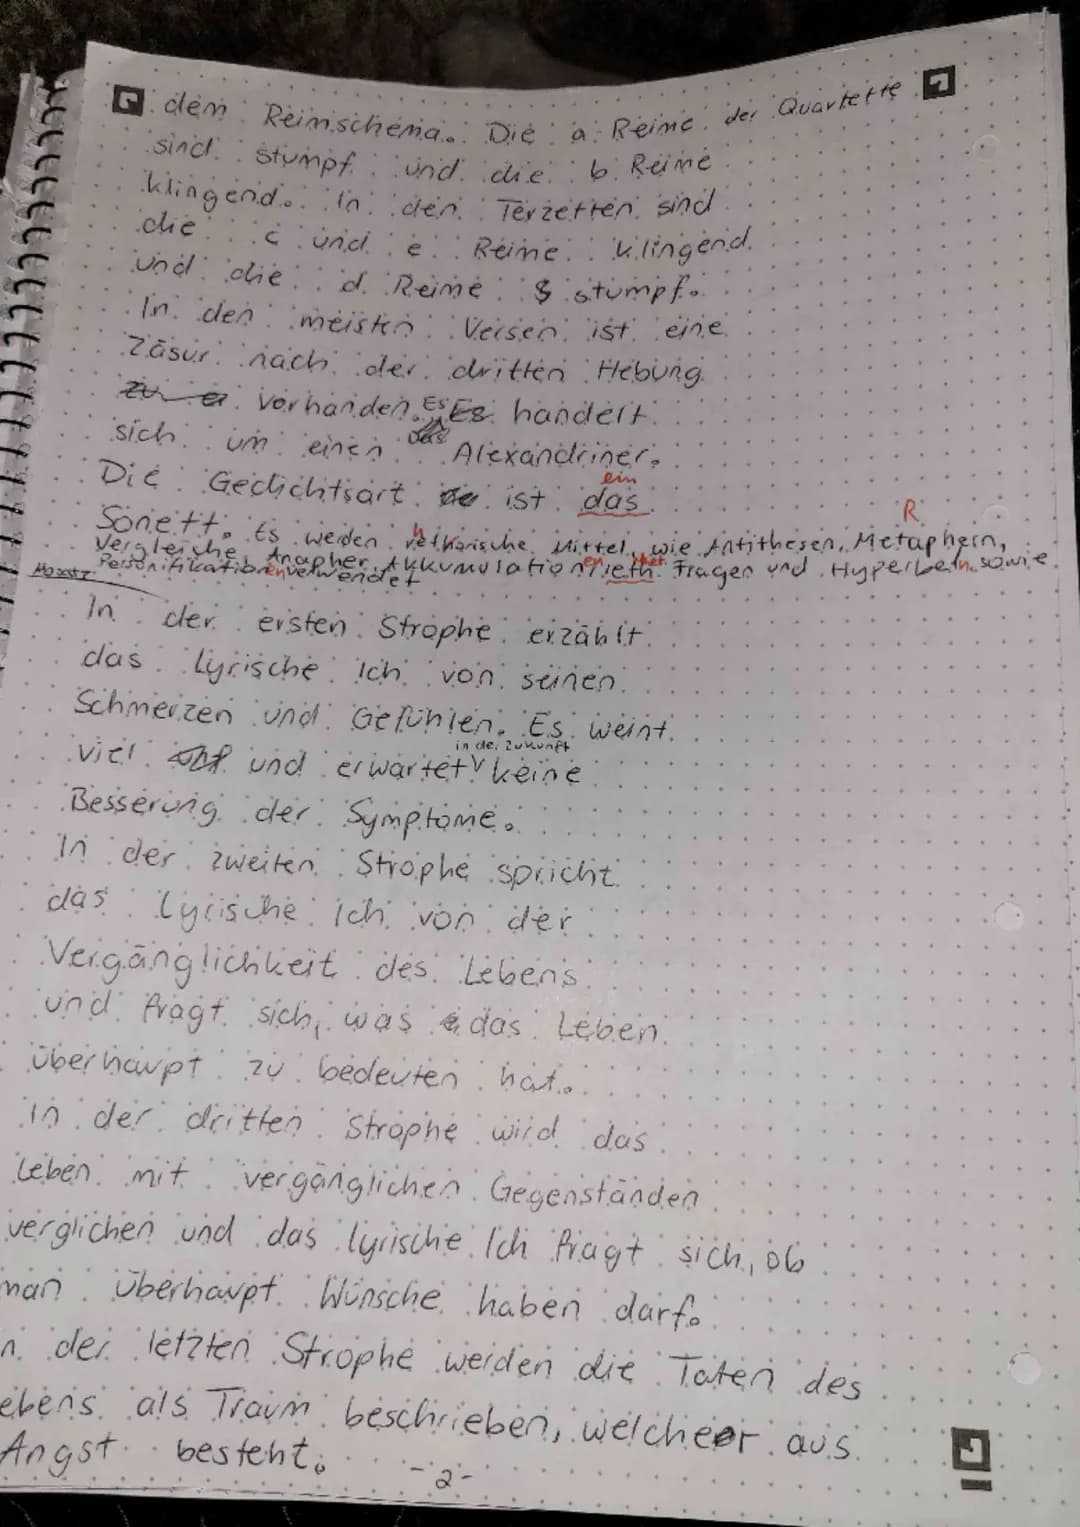 dem Reimschema. Die a Reime der Quartette
sind stumpf und die b Reime
klingend. In den Terzetten sind
die c und e Reime klingend
und die d Reime stumpf.
In den meisten Versen ist eine
Zäsur nach der dritten Hebung
vorhanden. Es handelt
sich um einen Alexandriner.
ein
Die Gedichtsart ist das
R
Sonett. Es werden rethorische Mittel, wie Antithesen, Metaphern,
Vergleiche, Anapher, Akkumulationen, reth. Fragen und Hyperbeln sowie
Personifikationen verwendet
In der ersten Strophe erzählt
das lyrische Ich von seinen
Schmerzen und Gefühlen. Es weint
in der Zukunft
viel und erwartet keine
Besserung der Symptome.
In der zweiten Strophe spricht
das Lyrische Ich von der
Vergänglichkeit des Lebens
und fragt sich, was das Leben
überhaupt zu bedeuten hat.
In der dritten Strophe wird das
Leben mit vergänglichen Gegenständen
verglichen und das lyrische Ich fragt sich, ob
man überhaupt Wünsche haben darf.
n der letzten Strophe werden die Taten des
ebens als Traum beschrieben, welcher aus
Angst besteht.
-2-